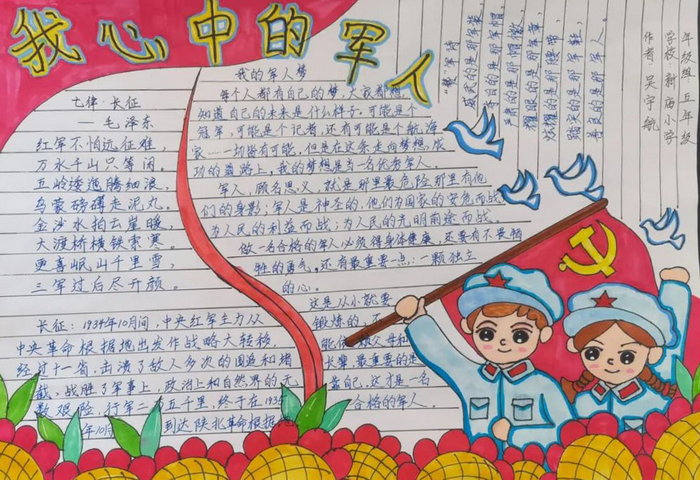 我心中的军人
七律·长征
——毛泽东
红军不怕远征难,
万水千山只等闲。
五岭逶迤腾细浪,
乌蒙磅礴走泥丸。
金沙水拍云崖暖,
大渡桥横铁索寒。
更喜岷山千里雪,
三军过后尽开颜。
长征:1934年10月间,中央红军主力从
中央革命根据地出发作战略大转移,
经过十一省,击溃了敌人多次的围追和堵
截,战胜了军事上,政治上和自然界的无
数艰险,行军二万五千里,终于在1935
年10月 到达陕北革命根据
我的军人梦
每个人都有自己的梦,大家都想
知道自己的未来是什么样子。可能是个
冠军,可能是个记者,还有可能是个航海
家……一切皆有可能,但是在这条走向梦想,成
功的道路上,我的梦想是当一名优秀军人。
军人,顾名思义,就是那里最危险那里有他
们的身影;军人是神圣的,他们为国家的安危而战,
为人民的利益而战;为人民的光明前途而战。
做一名合格的军人必须得身体健康,还要有不畏牺
牲的勇气,还有最重要一点:一颗独立
的心。
这是从小就要
锻炼的,不
能依 父母和
长辈,最重要的是
靠自己,这才是一名
合格的军人。
"赞军诗
威武的是那军装,
夺目的是那军帽
肃的是那帽徽,
耀眼的是那军章
炫耀的是那腰带,
踏实的是那军鞋,
善良的是那军人。
作者:吴宇航
学校:新庙小学
年级组:五年级